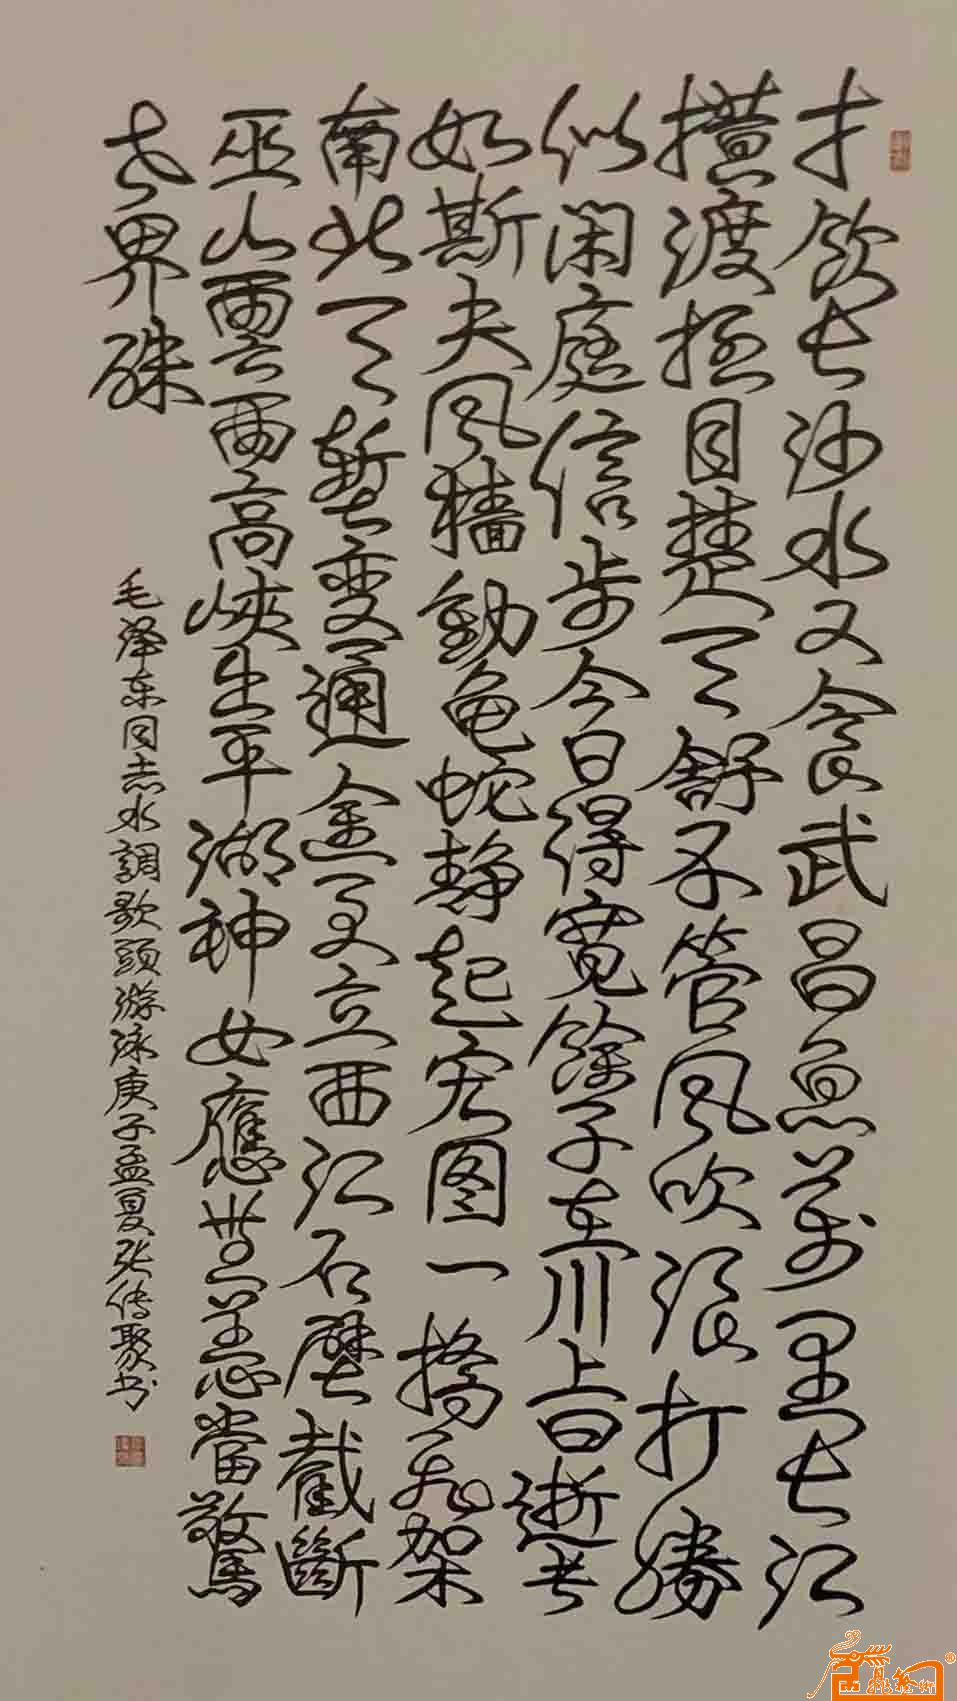 才飲长沙水又食武昌魚万里长江
横渡极目楚天舒不管風吹浪打勝
似闲庭信步今日得寛餘子在川上曰逝者
如斯夫風檣動龟蛇静起宏图一橋飛架
南北天堑变通途更立西江石壁截斷
巫山雲雨高峡出平湖神女應無恙當驚
世界殊
毛泽东同志水調歌頭游泳庚子孟夏张传聚书